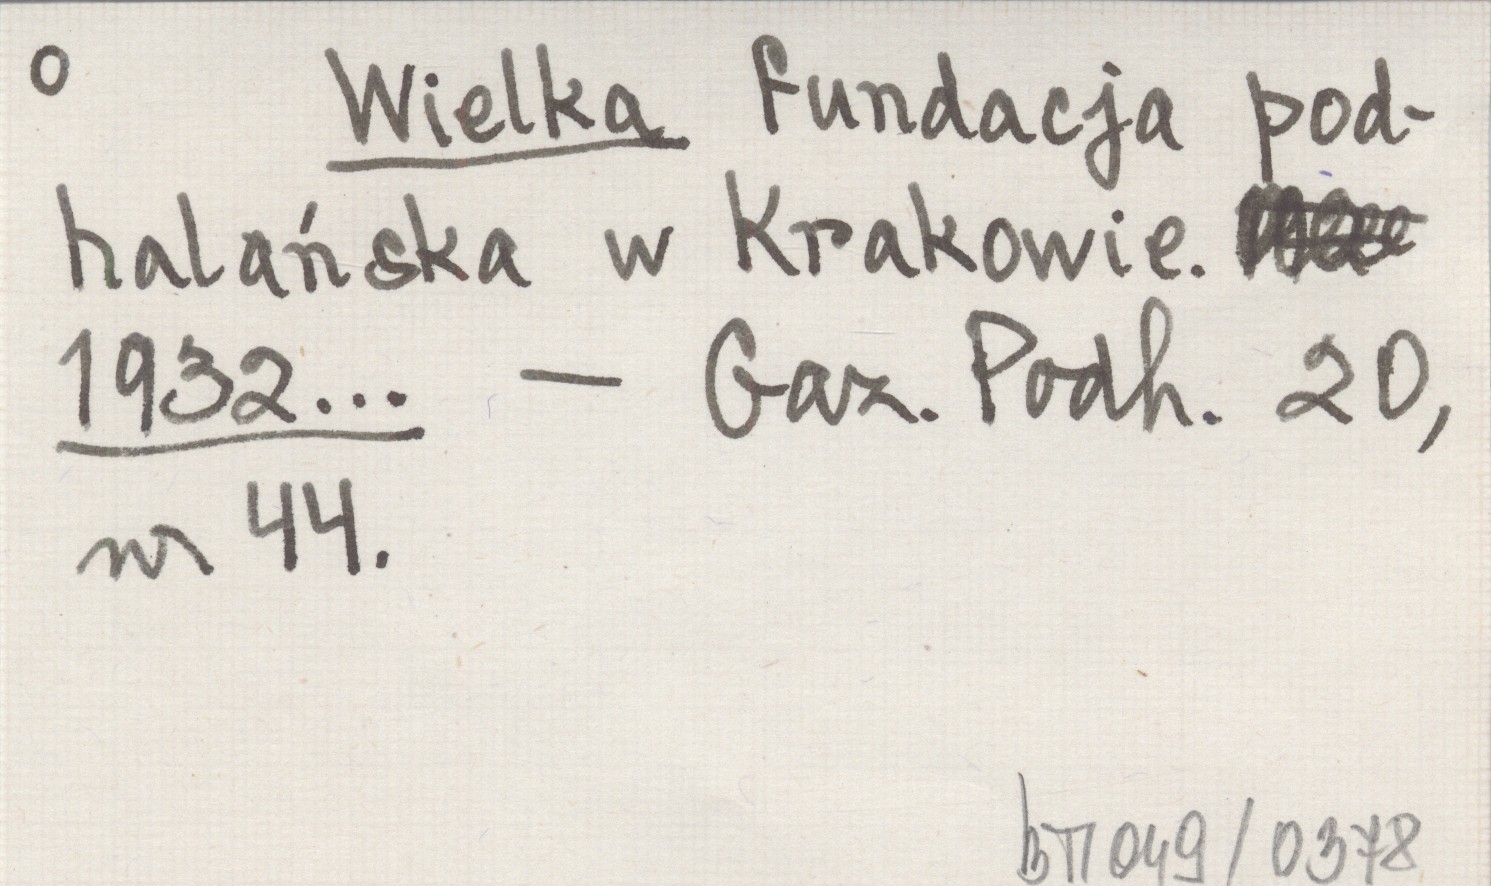 o Wielka fundacja pod-
halańska w Krakowie.
1932... — Gaz. Podh. 20,
nr 44.
049/0378